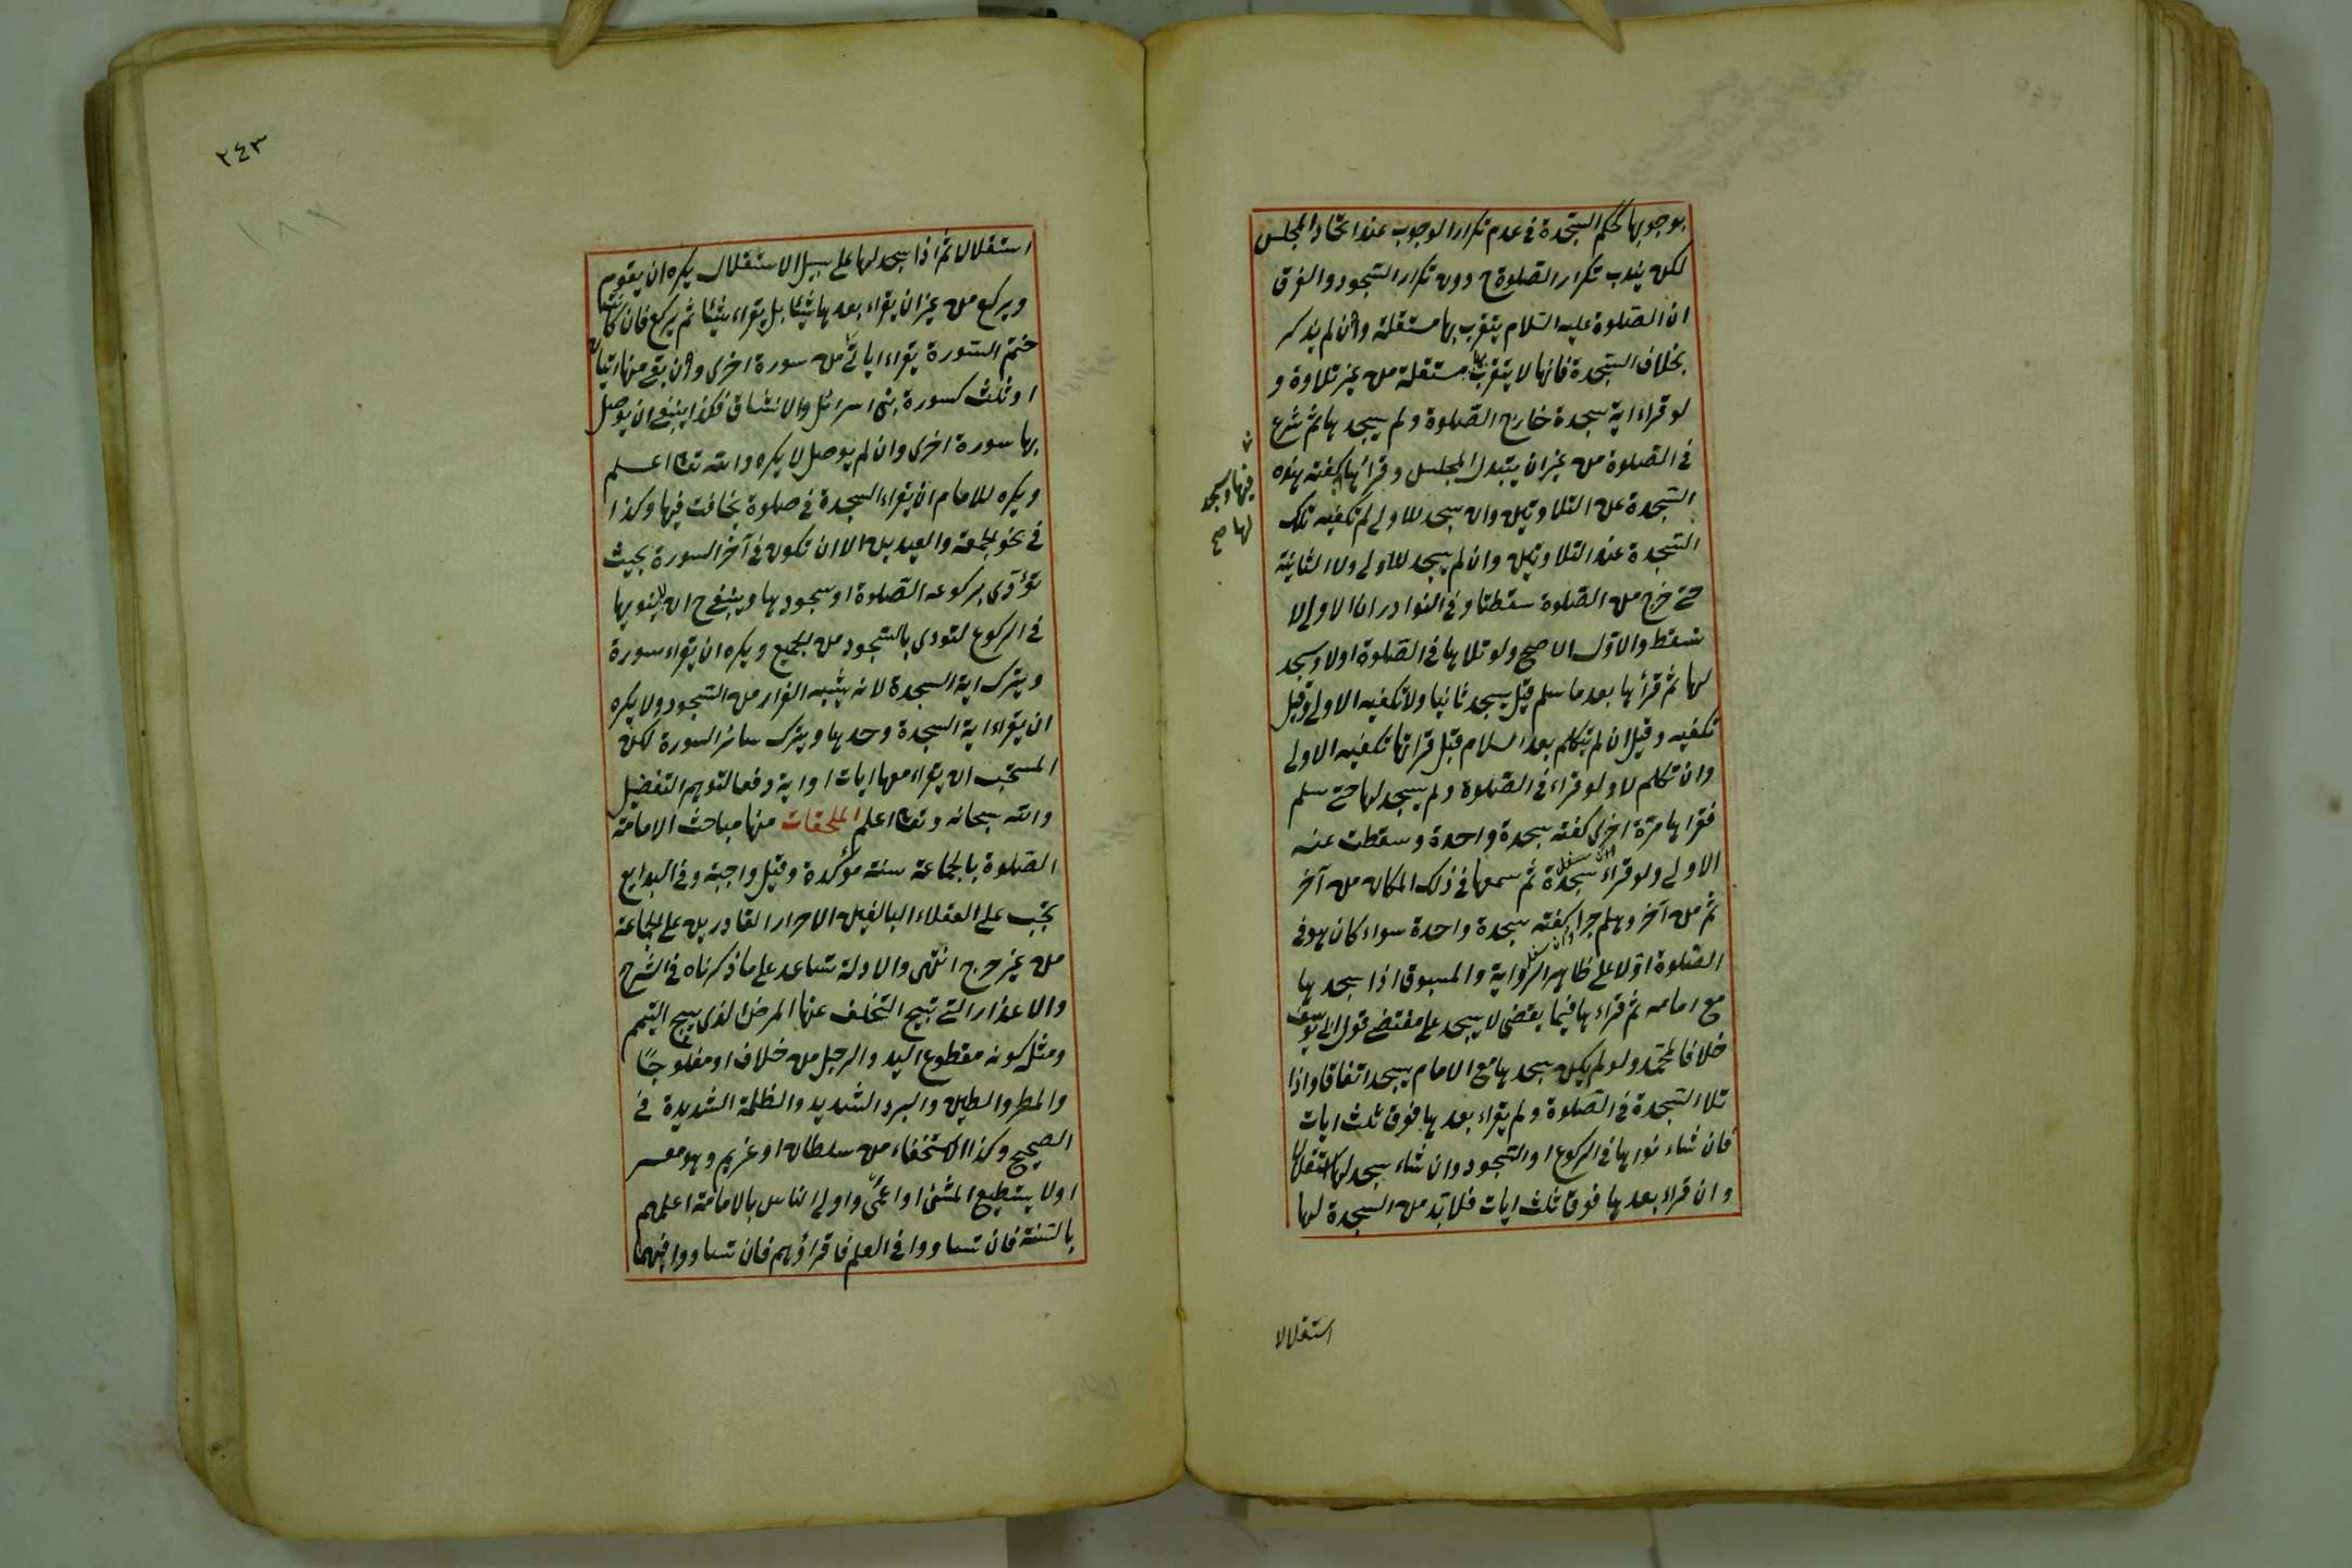 بوجوبها كحكم السجدة في عدم تكرار الوجوب عند اتحاد المجلس
لكن يندب تكرار الصلوة ح دون تكرار السجود والفرق
ان الصلوة عليه السلام يتقرب بها مستقلة وان لم يذكر
بخلاف السجدة فانها لا يتقرب بها مستقلة من غير تلاوة و
لو قراء اية سجدة خارج الصلوة ولم يسجد بها ثم شرع
في الصلوة من غير ان يتبدل المجلس وقرائها كفته هذه
فيها وسجد
لها صح
السجدة عن التلاوتين وان سجد للاولى لم تكفيه تلك
السجدة عند التلاوتين وان لم يسجد للاولى ولا الثانية
حتى خرج من الصلوة سقطتا وفي النوادر ان الاولى لا
تسقط والاول الاصح ولو تلاها في الصلوة اولا وسجد
لها ثم قرأها بعد ما سلم قيل يسجد ثانيا ولا تكفيه الاولى وقيل
تكفيه وقيل ان لم يتكلم بعد السلام قبل قرائها تكفيه الاولى
وان تكلم لا ولو قراء في الصلوة ولم يسجد لها حتى سلم
فقراها مرة اخرى كفته سجدة واحدة وسقطت عنه
الاولى ولو قراء سجدة ثم سمعها في ذلك المكان من آخر
ثم من آخر وهلم جرا كفته سجدة واحدة سواء كان هو في
الصلوة اولا على ظاهر الرواية والمسبوق اذا سجد بها
مع امامه ثم قراء بها فيما يقضى لا يسجد على مقتضى قول ابى يوسف
خلافا لمحمد ولو لم يكن سجد بها مع الامام يسجد اتفاقا واذا
تلا السجدة في الصلوة ولم يقراء بعدها فوق ثلث ايات
فان شاء نوى بها في الركوع او السجود وان شاء سجد لها استقلالا
وان قراء بعدها فوق ثلث ايات فلا بد من السجدة لها
استقلالا
٢٤٣
١٨٢
استقلالا ثم اذا سجد لها على سبيل الاستقلال يكره ان يقوم
ويركع من غير ان يقراء بعدها شيئا بل يقراء شيئا ثم يركع فان كانت
ختم السورة يقراء اياتى من سورة اخرى وان بقى منها ايتان
او ثلث كسورة بنى اسرائل والانشقاق فكذا ينبغى ان يوصل
بها سورة اخرى وان لم يوصل لا يكره والله تعا اعلم
ويكره للامام ان يقراء السجدة في صلوة يخافت فيها وكذا
في نحو الجمعة والعيدين الا ان تكون في آخر السورة بحيث
تؤدى بركوعه الصلوة او سجودها وينبغى ح ان لا ينويها
في الركوع لتودى بالسجود من الجميع ويكره ان يقراء سورة
ويترك اية السجدة لانه يشبه الفرار من السجود ولا يكره
ان يقراء اية السجدة وحدها ويترك سائر السورة لكن
المستحب ان يقراء معها ايات او اية دفعا لتوهم التفضيل
والله سبحانه وتعا اعلم الملحقات منها مباحث الامامة
الصلوة بالجماعة سنة مؤكدة وقيل واجبة وفي البدايع
تجب على العقلاء البالغين الاحرار القادرين على الجماعة
من غير حرج انتهى والادلة تساعد على ما ذكرناه في الشرح
والاعذار التى تبيح التخلف عنها المرض الذى يبيح التيمم
ومثل كونه مقطوع اليد والرجل من خلاف او مفلوجا
والمطر والطين والبرد الشديد والظلمة الشديدة في
الصحيح وكذا الاستخفاء من سلطان او غريم وهو معسر
او لا يستطيع المشى او اعمى واولى الناس بالامامة اعلمهم
بالسنة فان تساووا في العلم فاقراؤهم فان تساووا فيهما